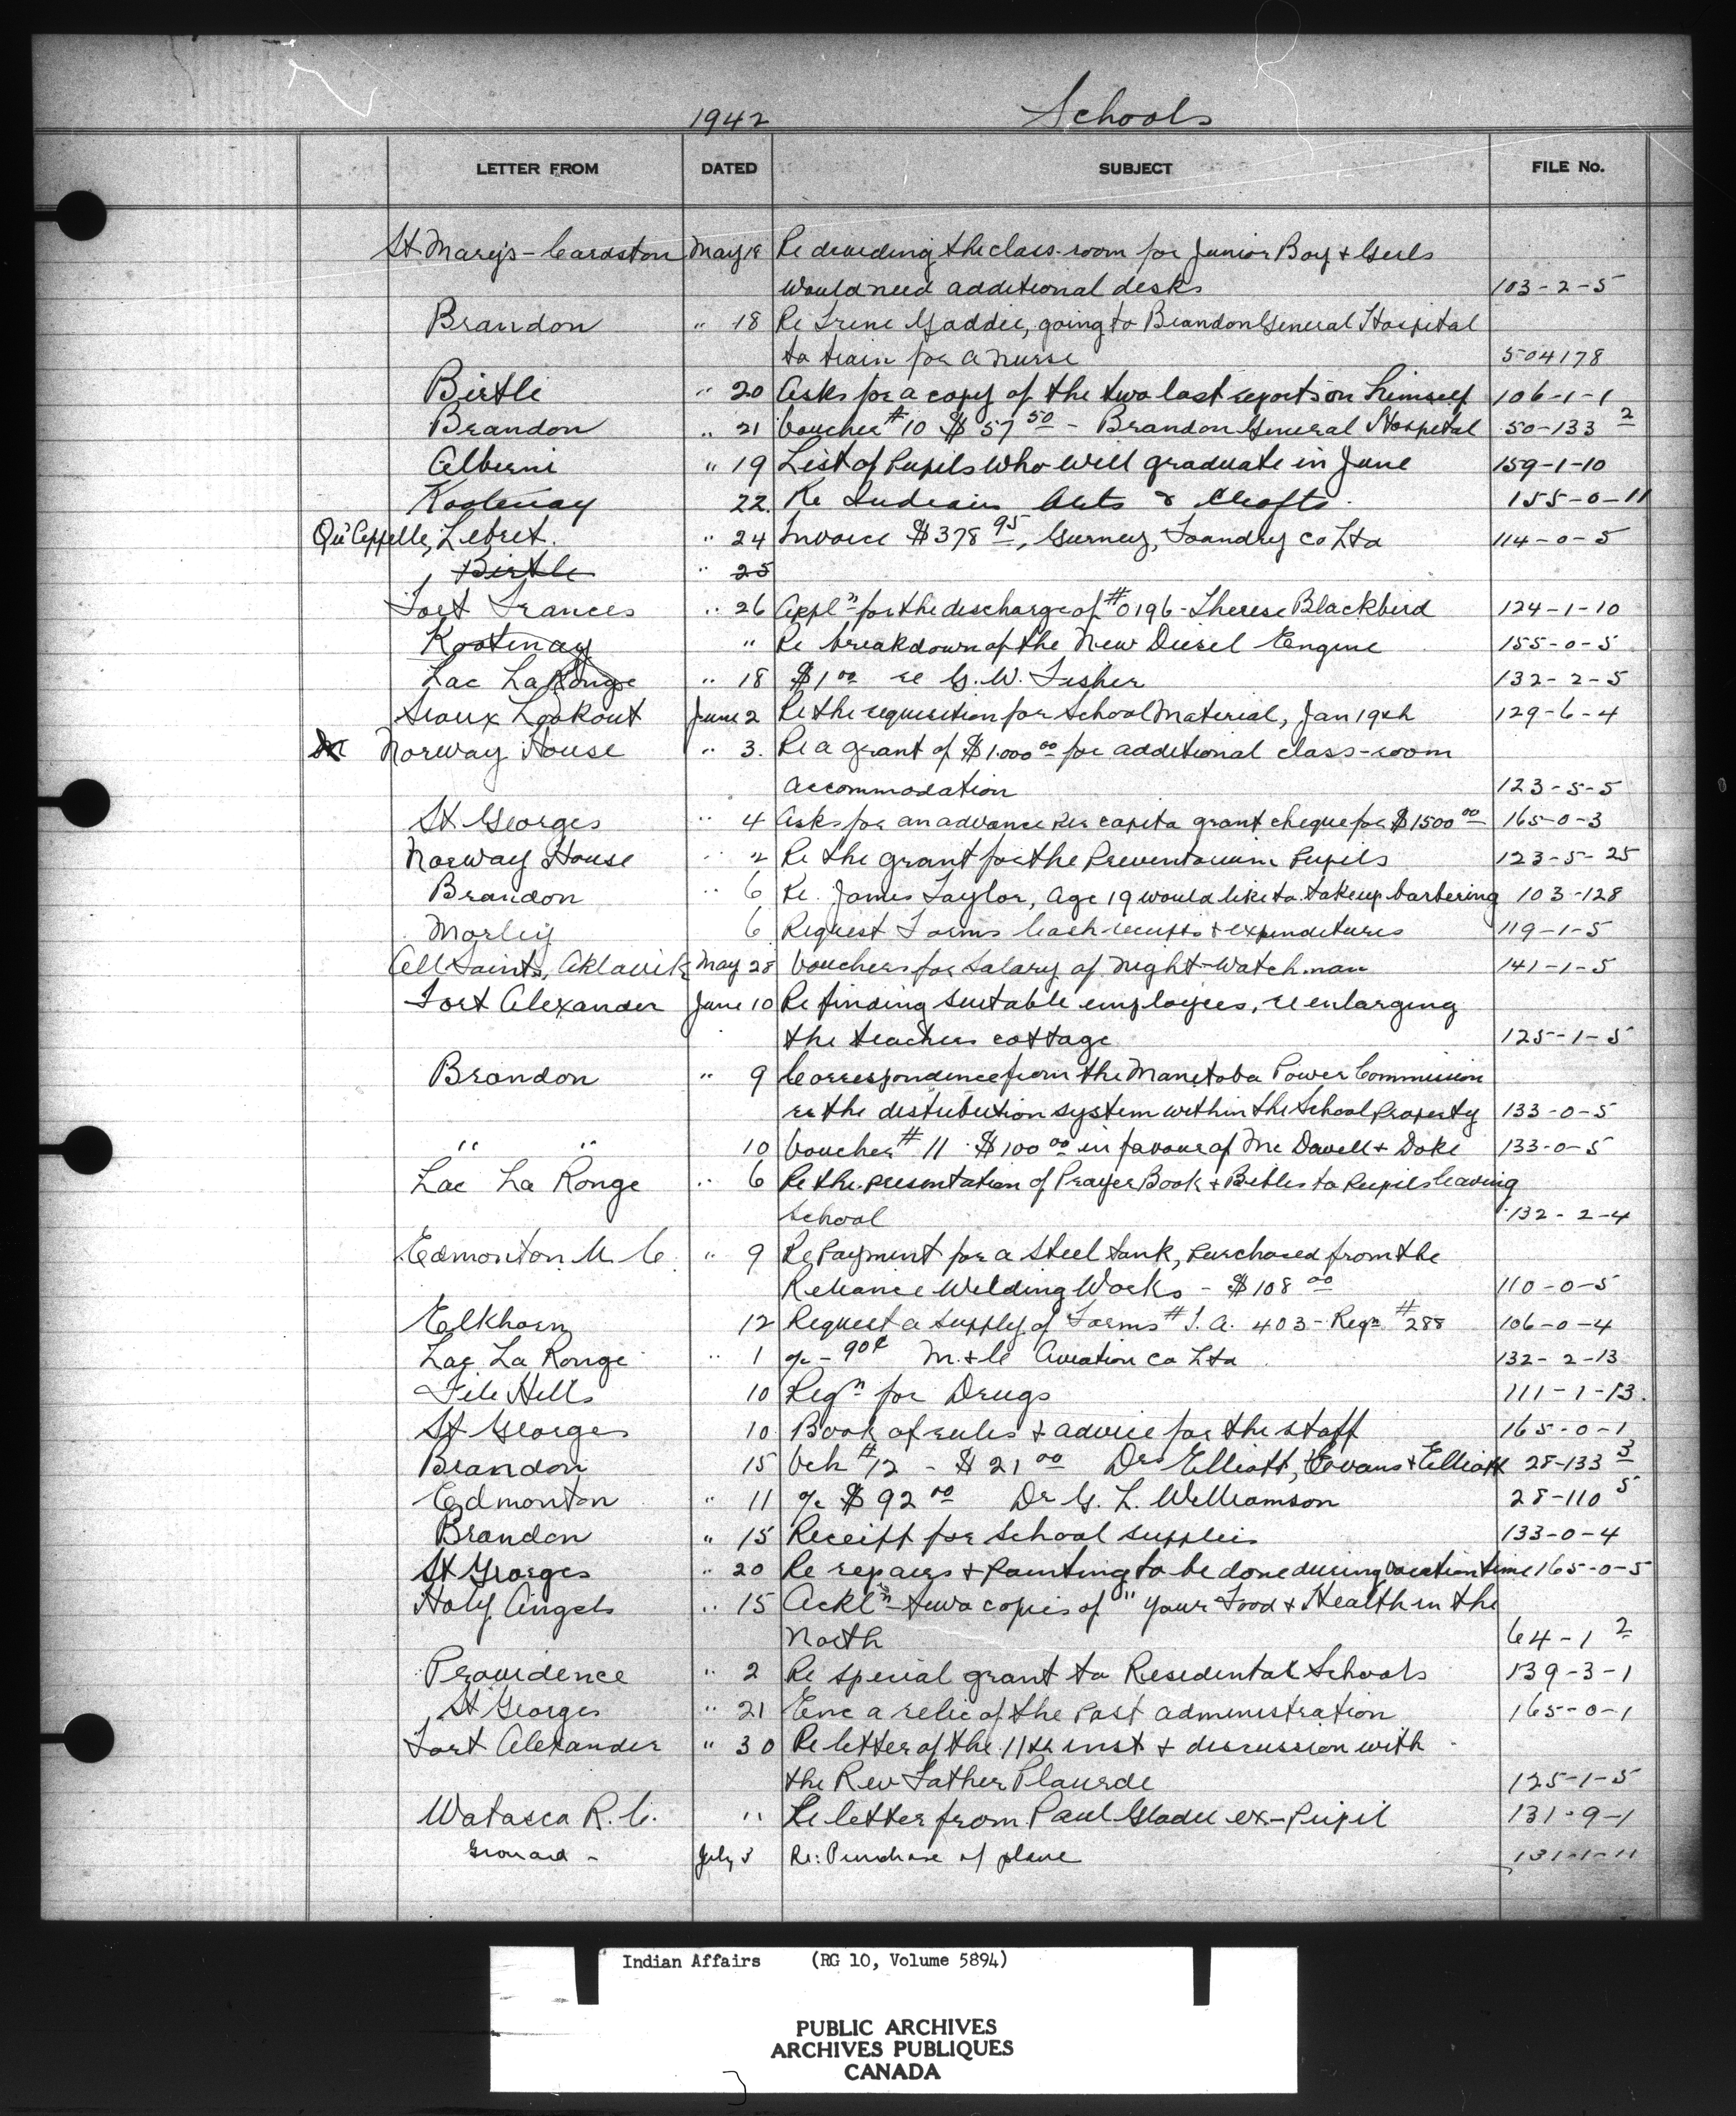 1942 Schools
LETTER FROM DATED SUBJECT FILE No.
St Mary's - Cardston May 18 Re dividing the class-room for Junior Boy & Girls
would need additional desks 103-2-5
Brandon " 18 Re Irene Gaddie, going to Brandon General Hospital
to train for a nurse 504178
Birtle " 20 Asks for a copy of the two last reports on himself 106-1-1
Brandon " 21 Voucher #10 $57 50 - Brandon General Hospital 50-133 2
Alberni " 19 List of Pupils who will graduate in June 159-1-10
Kootenay 22. Re Indian Arts & Crafts. 155-0-11
Qu'Appelle, Lebret. " 24 Invoice $378 95, Gurney, Foundry Co Ltd 114-0-5
Birtle " 25
Fort Frances " 26 Appl n for the discharge of #0196 - Therese Blackbird 124-1-10
Kootenay " Re breakdown of the New Diesel Engine 155-0-5
Lac La Ronge " 18 $1 00 re G. W. Fisher 132-2-5
Sioux Lookout June 2 Re the requisition for School Material, Jan 19th 129-6-4
Norway House " 3. Re a grant of $1.000 00 for additional class-room
accommodation 123-5-5
St Georges " 4 Asks for an advance per capita grant cheque for $1500 00 165-0-3
Norway House " 2 Re the grant for the Preventorium Pupils 123-5-25
Brandon " 6 Re. James Taylor, age 19 would like to take up barbering 103-128
Morley 6 Request Forms Cash receipts & expenditures 119-1-5
All Saints, Aklavik May 28 Vouchers for Salary of Night-Watchman 141-1-5
Fort Alexander June 10 Re finding suitable employees, re enlarging
the teachers cottage 125-1-5
Brandon " 9 Correspondence from the Manitoba Power Commission
re the distribution system within the School Property 133-0-5
" " 10 Voucher #11 $100 00 in favour of Mc Dowell & Doke 133-0-5
Lac La Ronge " 6 Re the presentation of Prayer Book & Bibles to Pupils leaving
School 132-2-4
Edmonton U. C. " 9 Re Payment for a steel tank, purchased from the
Reliance Welding Works - $108 00 110-0-5
Elkhorn 12 Request a supply of Forms # I. A. 403 - Reqn #288 106-0-4
Lac La Ronge " 1 a/c - 90¢ M. & C Aviation Co Ltd 132-2-13
File Hills 10 Reqn for Drugs 111-1-13.
St Georges 10 Book of rules & advice for the staff 165-0-1
Brandon 15 Vch #12 - $21 00 Drs Elliott, Evans & Elliott 28-133 3
Edmonton " 11 a/c $92 00 Dr G. L. Williamson 28-110 5
Brandon " 15 Receipt for School supplies 133-0-4
St Georges " 20 Re repairs & painting to be done during vacation time 165-0-5
Holy Angels " 15 Ackl n two copies of " your Food & Health in the
North 64-1 2
Providence " 2 Re special grant to Residental Schools 139-3-1
St Georges " 21 Enc a relic of the past administration 165-0-1
Fort Alexander " 30 Re letter of the 11th inst & discussion with
the Rev Father Plourde 125-1-5
Watasca R. C. " Re letter from Paul Gladu ex-Pupil 131-9-1
Grouard - July 3 Re: Purchase of plane 131-1-11
Indian Affairs (RG 10, Volume 5894)
PUBLIC ARCHIVES
ARCHIVES PUBLIQUES
CANADA